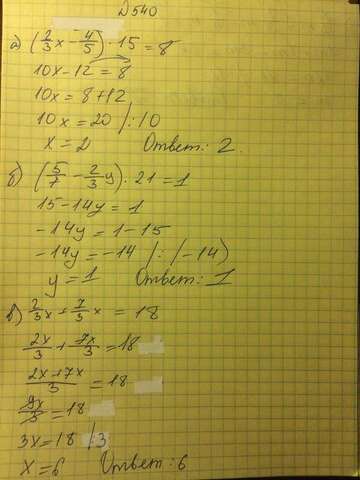 № 540
а) (2/3x - 4/5) · 15 = 8
10x - 12 = 8
10x = 8 + 12
10x = 20 |: 10
x = 2 Ответ: 2.
б) (5/7 - 2/3y) · 21 = 1
15 - 14y = 1
-14y = 1 - 15
-14y = -14 |: (-14)
y = 1 Ответ: 1
в) 2/3x + 7/3x = 18
2x/3 + 7x/3 = 18
2x+7x/3 = 18
9x/3 = 18
3x = 18 |:3
x = 6 Ответ: 6